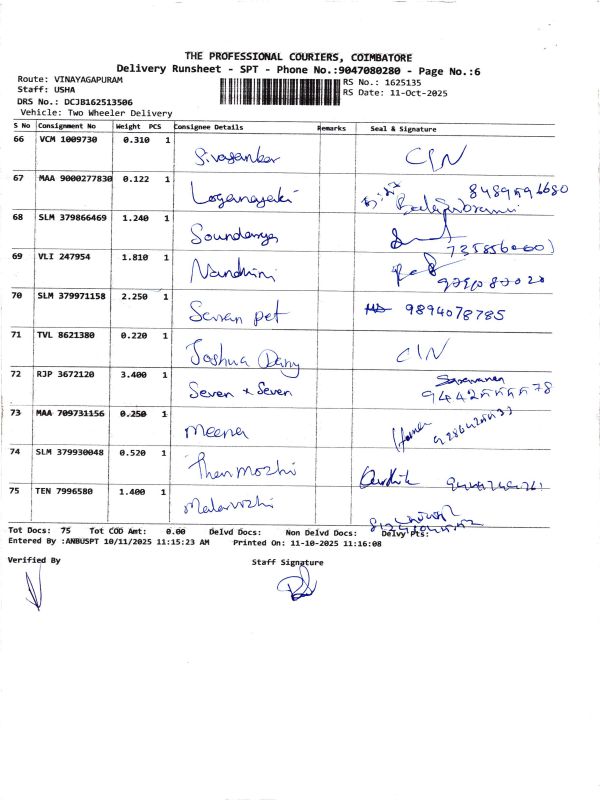 THE PROFESSIONAL COURIERS, COIMBATORE
Delivery Runsheet - SPT - Phone No.:9047080280 - Page No.:6
Route: VINAYAGAPURAM
Staff: USHA
DRS No.: DCJB162513506
Vehicle: Two Wheeler Delivery
RS No.: 1625135
RS Date: 11-Oct-2025
S No Consignment No Weight PCS Consignee Details Remarks Seal & Signature
66 VCM 1009730 0.310 1 Sivasankar C/N
67 MAA 9000277830 0.122 1 Loganayaki
68 SLM 379866469 1.240 1 Soundarya
69 VLI 247954 1.810 1 Nandhini
70 SLM 379971158 2.250 1 Savan pet 9894078785
71 TVL 8621380 0.220 1 Joshua Dany C/N
72 RJP 3672120 3.400 1 Seven x Seven Saravanan
73 MAA 709731156 0.250 1 Meena
74 SLM 379930048 0.520 1 Thenmozhi Karthik
75 TEN 7996580 1.400 1 Malarvizhi
Tot Docs: 75 Tot COD Amt: 0.00 Delvd Docs: Non Delvd Docs: Delvy Pts:
Entered By :ANBUSPT 10/11/2025 11:15:23 AM Printed On: 11-10-2025 11:16:08
Verified By Staff Signature